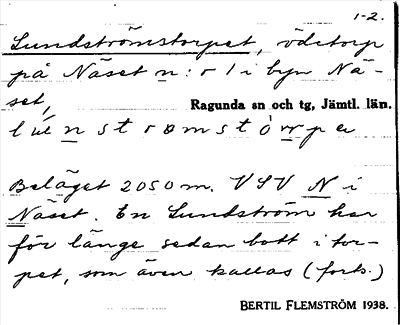 1-2.
Lundströmstorpet, ödetorp
på Näset n:r 1 i byn Nä-
set,
Ragunda sn och tg, Jämtl. län.
Beläget 2050 m. VSV N i
Näset. En Lundström har
för länge sedan bott i tor-
pet, som även kallas (forts.)
BERTIL FLEMSTRÖM 1938.